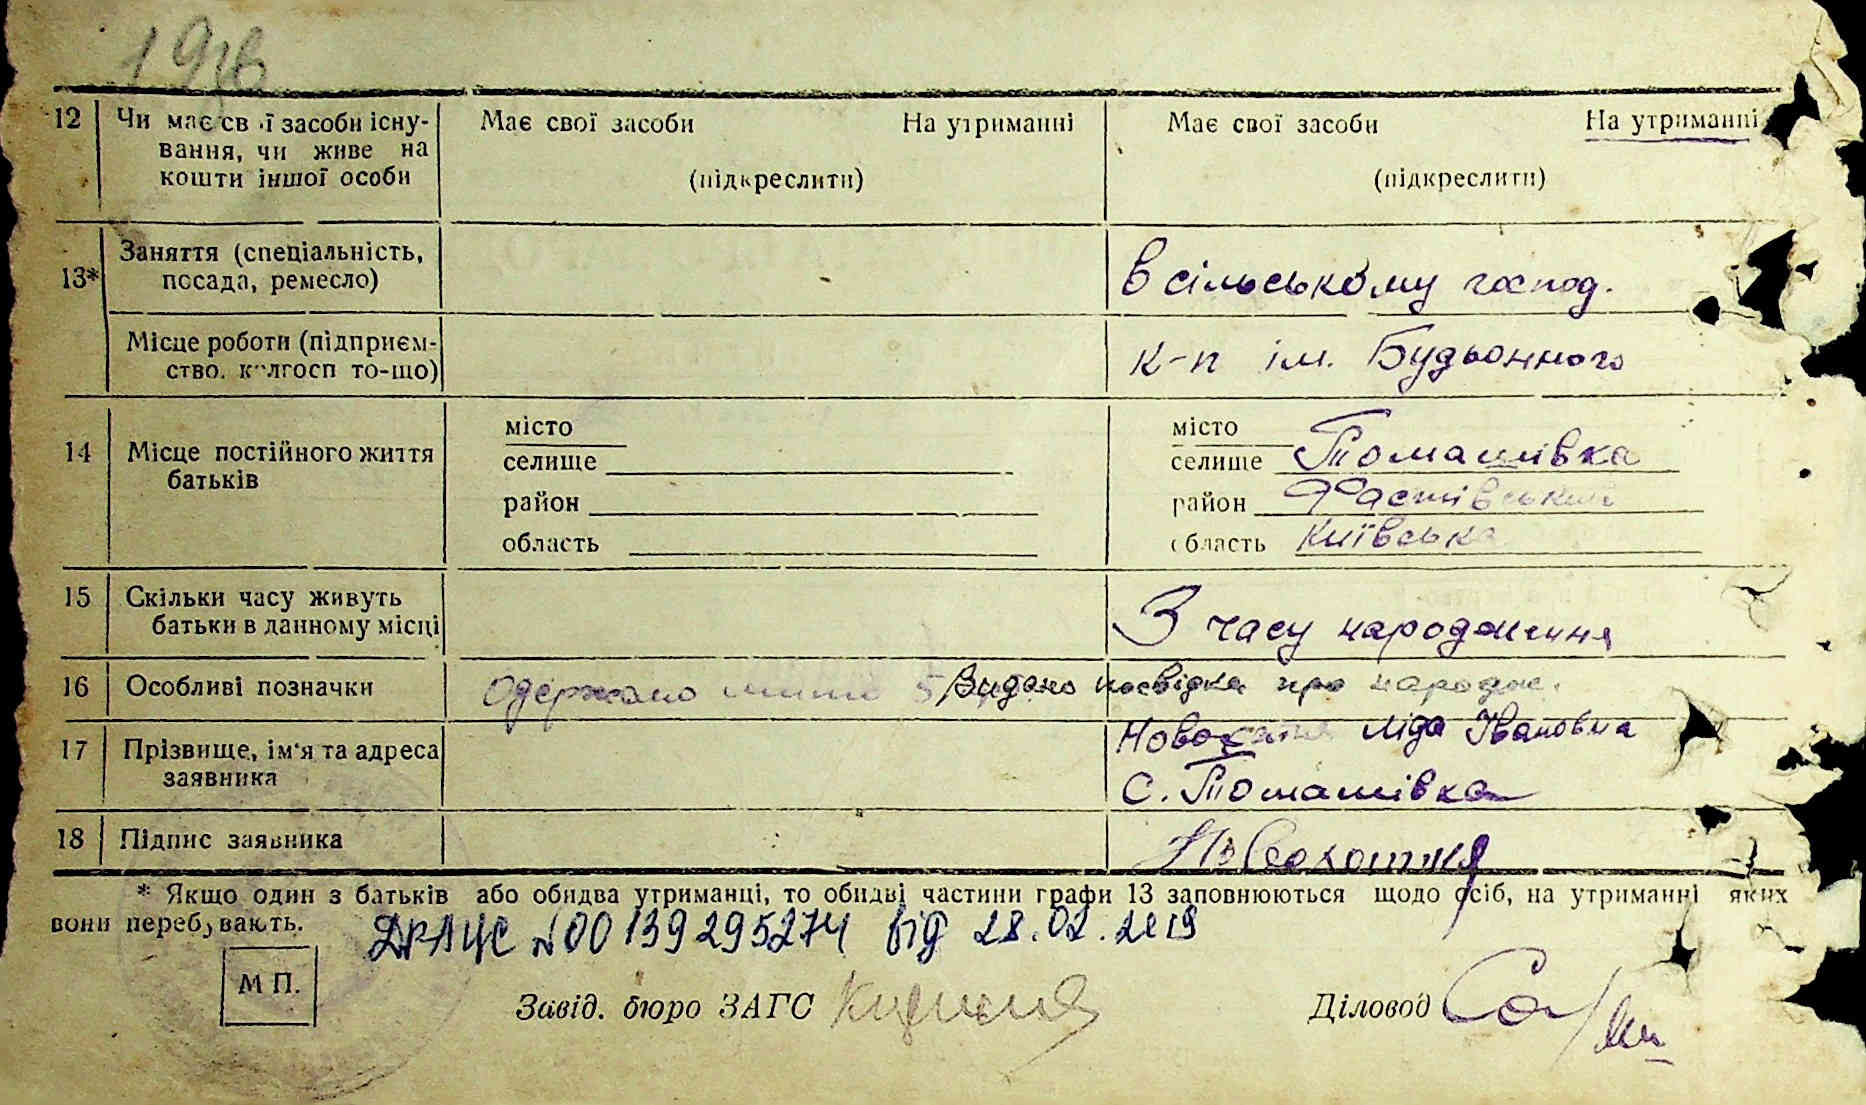 12 Чи має св ї засоби існу- Має свої засоби На утриманні Має свої засоби На утриманні
вання, чи живе на
кошти іншої особи (підкреслити) (підкреслити)
Заняття (спеціальність,
13* посада, ремесло) в сільському господ.
Місце роботи (підприєм- к-п ім. Будьонного
ство, колгосп то-що)
місто місто
14 Місце постійного життя селище селище Томашівка
батьків район район Фастівський
область область Київська
15 Скільки часу живуть З часу народження
батьки в данному місці
16 Особливі позначки Одержано Видано посвідка про народж.
17 Прізвище, ім'я та адреса Ліда Івановна
заявника с. Томашівка
18 Підпис заявника
* Якщо один з батьків або обидва утриманці, то обидві частини графи 13 заповнюються щодо осіб, на утриманні яких
вони перебувають.
ДРАЦС №00139295274 від 28.02.2019
М П.
Завід. бюро ЗАГС Діловод